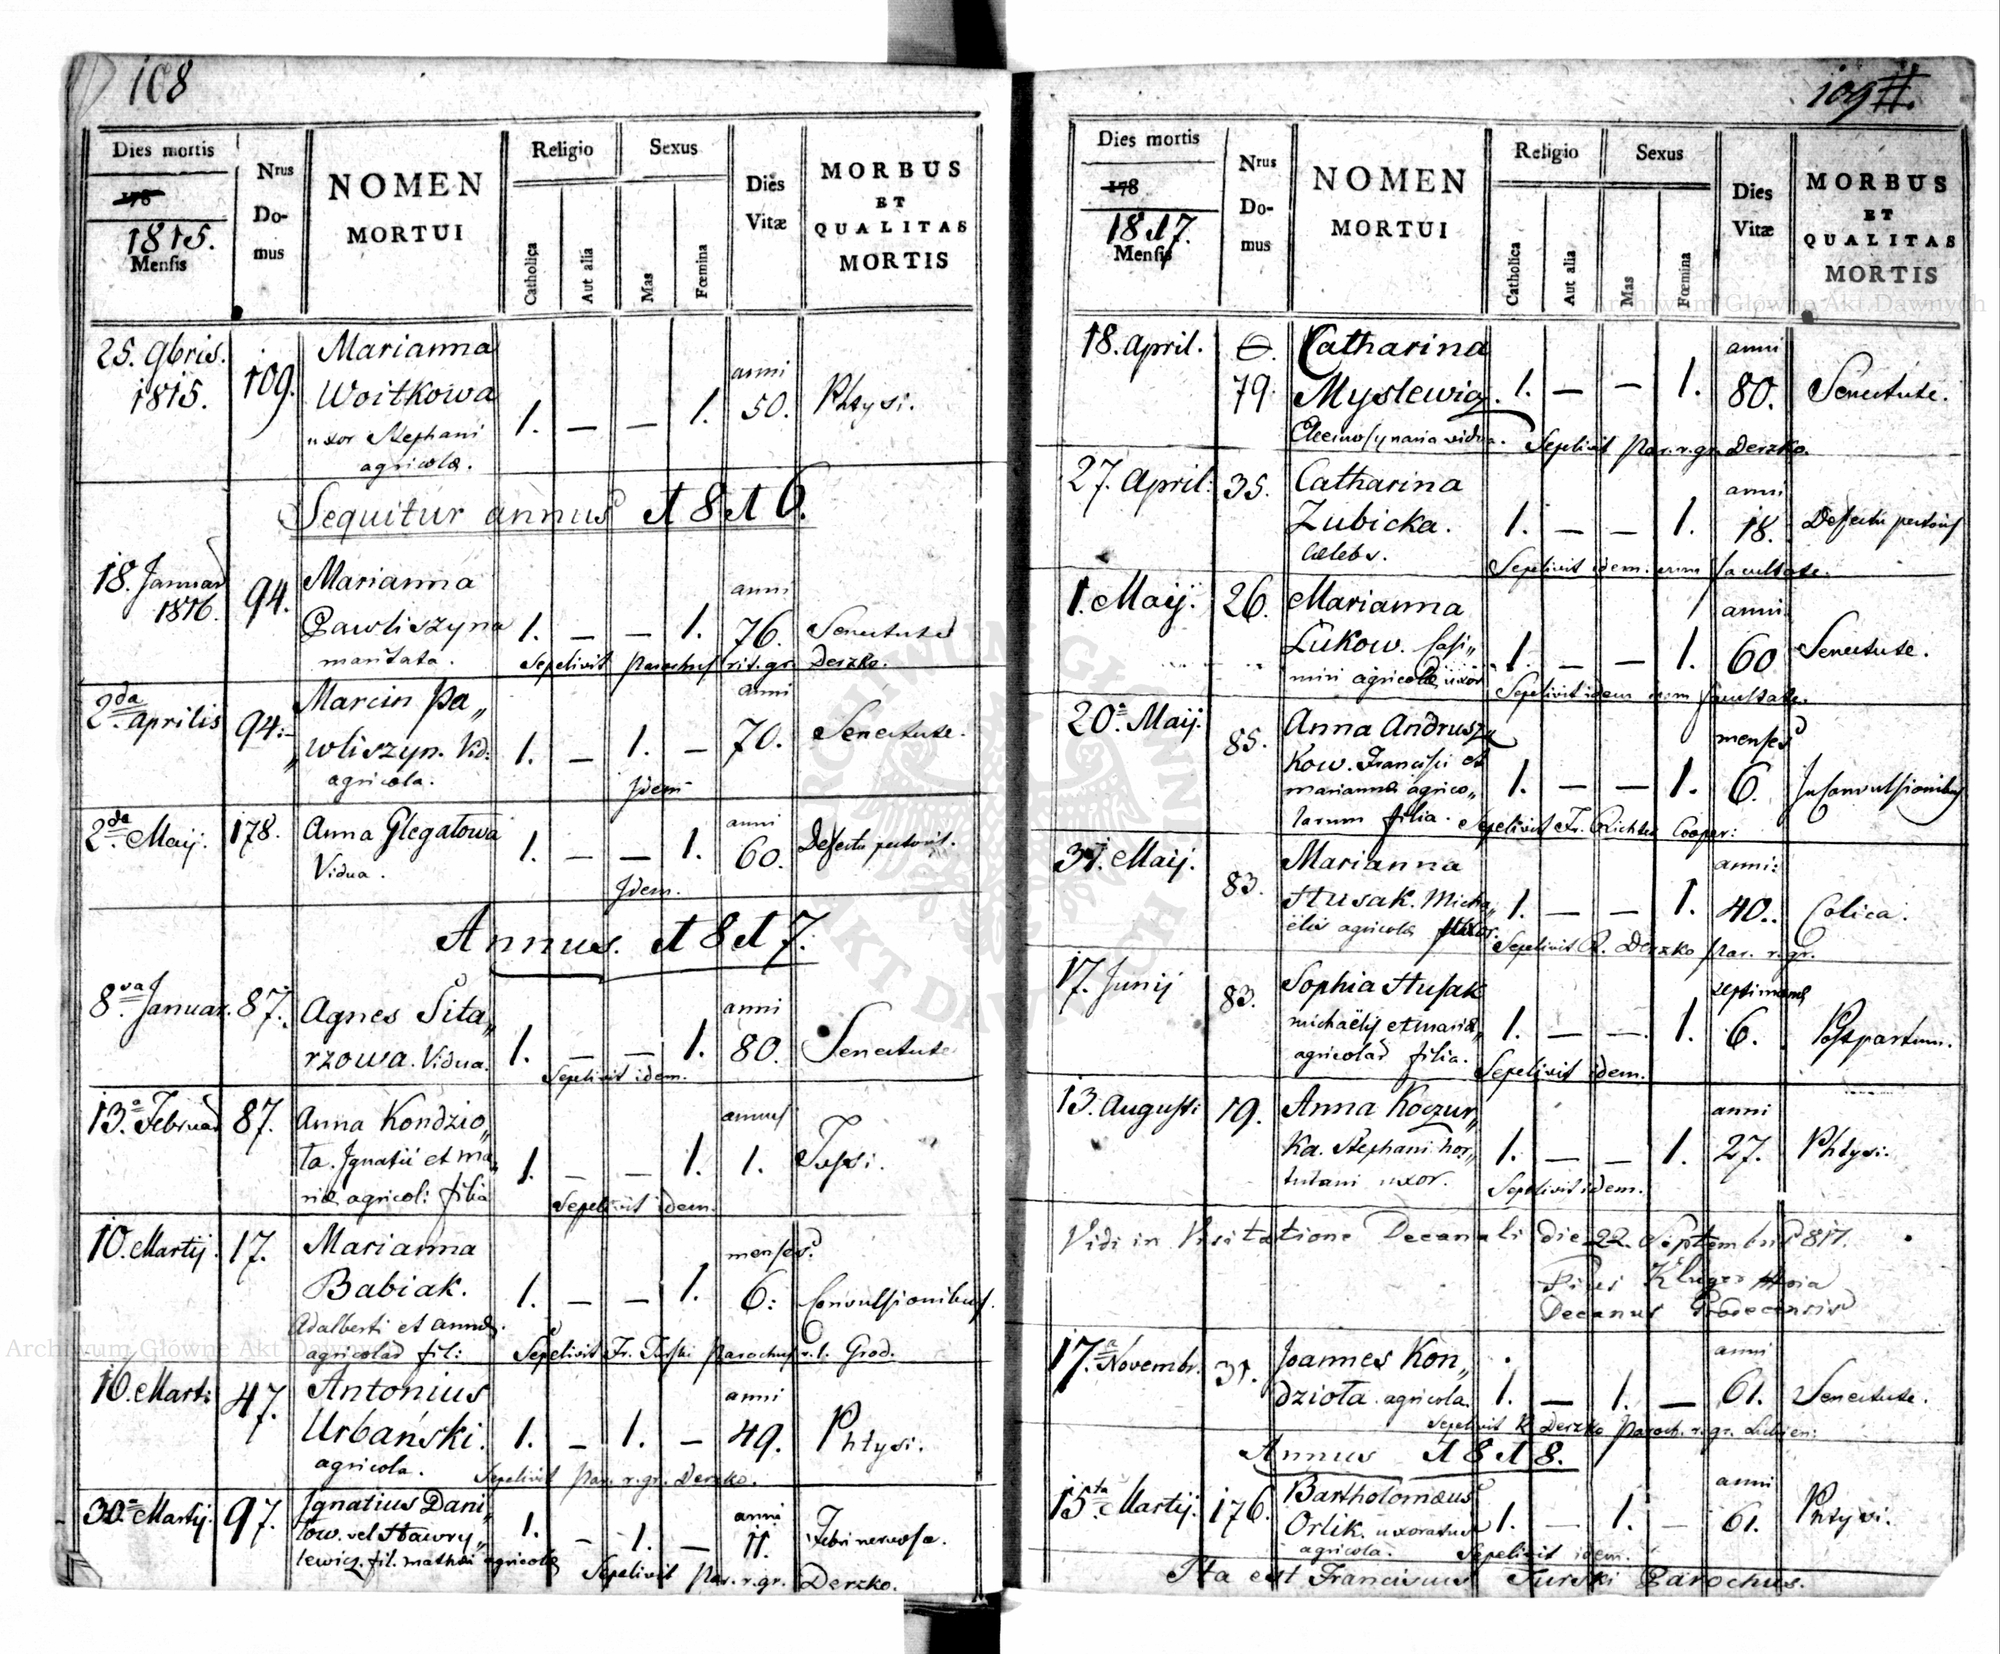 108
Dies mortis
178
1815.
Mensis
Nrus
Do-
mus
NOMEN
MORTUI
Religio
Catholica
Aut alia
Sexus
Mas
Fœmina
Dies
Vitæ
MORBUS
ET
QUALITAS
MORTIS
25. 9bris.
1815.
109.
Marianna
Woitkowa
uxor Stephani
agricolæ.
1. — — 1.
anni
50.
Phtysi.
Sequitur annus 1816.
18. Januar
1816.
94.
Marianna
Pawliszyna
maritata.
1. — — 1.
anni
76.
Senectute
Sepelivit Parochus rit. gr. Derzko.
2da Aprilis
94.
Marcin Pa„
„wliszyn. Vid:
agricola.
1. — 1. —
anni
70.
Senectute.
Idem
2da Maij.
178.
Anna Glegatowa
Vidua.
1. — — 1.
anni
60.
Defectu pectoris.
Idem.
Annus. 1817.
8va Januar.
87.
Agnes Sita„
rzowa. Vidua.
1. — — 1.
anni
80.
Senectute
Sepelivit idem.
13. Februar
87.
Anna Kondzio„
ła. Ignatii et Ma„
riæ agricol: filia
1. — — 1.
annus
1.
Tussi.
Sepelivit idem.
10. Martij.
17.
Marianna
Babiak.
Adalberti et Annæ
agricolar fil:
1. — — 1.
menses
6:
Convulsionibus.
Sepelivit Fr. Turski Parochus r. l. Grod.
16. Marti
47.
Antonius
Urbański.
agricola.
1. — 1. —
anni
49.
Phtysi.
Sepelivit Par. r. gr. Derzko.
30. Martij.
97.
Ignatius Dani„
łow. vel Hawry„
lewicz. fil. Mathæi agricolæ
1. — 1. —
anni
11.
Febri nervosa.
Sepelivit Par. r. gr. Derzko.
109
Dies mortis
178
1817.
Mensis
Nrus
Do-
mus
NOMEN
MORTUI
Religio
Catholica
Aut alia
Sexus
Mas
Fœmina
Dies
Vitæ
MORBUS
ET
QUALITAS
MORTIS
18. April.
79.
Catharina
Myslewicz.
Eleemosynaria vidua.
1. — — 1.
anni
80.
Senectute.
Sepelivit Par. r. gr. Derzko.
27. April:
35.
Catharina
Zubicka.
Cælebs.
1. — — 1.
anni
18.
Defectu pectoris
Sepelivit idem. cum facultate.
1. Maij.
26.
Marianna
Łukow. Casi„
miri agricolæ uxor
1. — — 1.
anni
60
Senectute.
Sepelivit idem cum facultate.
20. Maij.
85.
Anna Andrusz„
kow. Francisci et
Mariannæ agrico„
larum filia.
1. — — 1.
menses
6.
In Convulsionibus
Sepelivit Fr. Richter Cooper:
31. Maij.
83.
Marianna
Husak. Micha„
ëlis agricolæ uxor.
1. — — 1.
anni:
40.
Colica.
Sepelivit R. Derzko Par. r. gr.
17. Junij
83.
Sophia Husak
Michaëlis et Mariæ
agricolar filia.
1. — — 1.
septimanæ
6.
Post partum.
Sepelivit idem.
13. Augusti
19.
Anna Koczur„
ka. Stephani hor„
tulani uxor.
1. — — 1.
anni
27.
Phtysi.
Sepelivit idem.
Vidi in Visitatione Decanali die 22. Septembris 817.
Decanus Grodecensis
17. Novembr.
31.
Joannes Kon„
dzioła. agricola.
1. — 1. —
anni
61.
Senectute.
Sepelivit R. Derzko Paroch. r. gr. Lubien:
Annus 1818.
15ta Martij.
176.
Bartholomæus
Orlik. uxoratus
agricola.
1. — 1. —
anni
61.
Phtysi.
Sepelivit idem.
Ita est Franciscus Turski Parochus.
Archiwum Główne Akt Dawnych